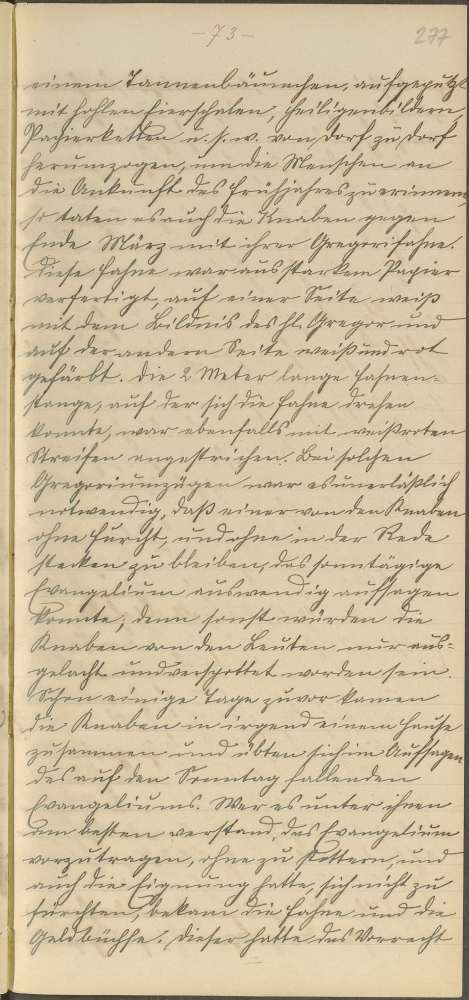 -73-
277
einem Tannenbäumchen, aufgeputzt
mit hohlen Eierschalen, Heiligenbildern,
Papierketten u.s.w. von Dorf zu Dorf
herumzogen, um die Menschen an
die Ankunft des Frühjahres zu erinnern,
so taten es auch die Knaben gegen
Ende März mit ihrer Gregorifahne.
Diese Fahne war aus starkem Papier
verfertigt, auf einer Seite weiß
mit dem Bildnis des hl. Gregor und
auf der andern Seite weiß und rot
gefärbt. Die 2 Meter lange Fahnen-
stange, auf der sich die Fahne drehen
konnte, war ebenfalls mit weißroten
Streifen angestrichen. Bei solchen
Gregoriumzügen war es unerläßlich
notwendig, daß einer von den Knaben
ohne Furcht, und ohne in der Rede
stecken zu bleiben, das sonntägige
Evangelium auswendig aufsagen
konnte; denn sonst würden die
Knaben von den Leuten nur aus-
gelacht und verspottet worden sein.
Schon einige Tage zuvor kamen
die Knaben in irgend einem Hause
zusammen und übten sich im Aufsagen
des auf den Sonntag fallenden
Evangeliums. Wer es unter ihnen
am besten verstand, das Evangelium
vorzutragen, ohne zu stottern, und
auch die Eignung hatte, sich nicht zu
fürchten, bekam die Fahne und die
Geldbüchse. Dieser hatte das Vorrecht